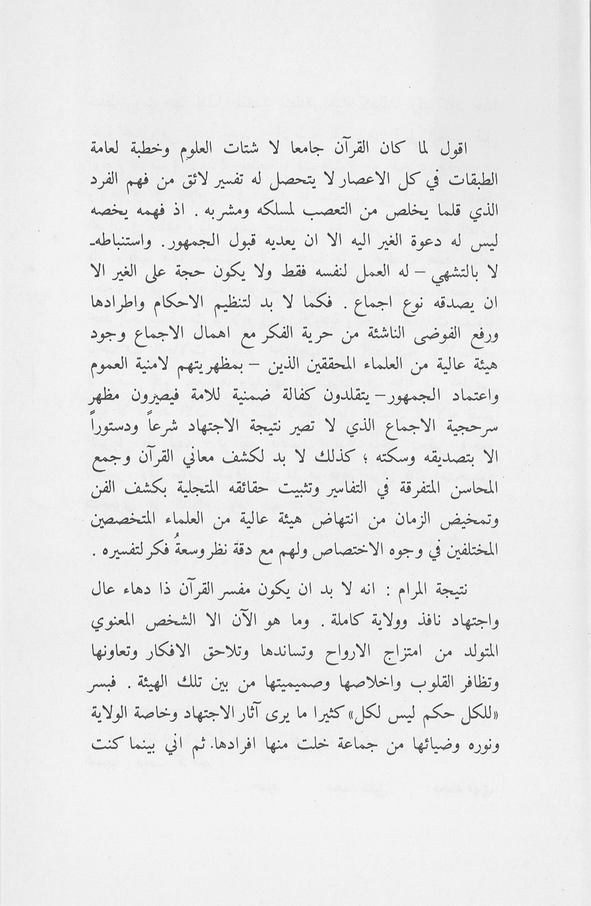 اقول لما كان القرآن جامعا لا شتات العلوم وخطبة لعامة
الطبقات في كل الاعصار لا يتحصل له تفسير لائق من فهم الفرد
الذي قلما يخلص من التعصب لمسلكه ومشربه . اذ فهمه يخصه
ليس له دعوة الغير اليه الا ان يعديه قبول الجمهور. واستنباطه-
لا بالتشهي – له العمل لنفسه فقط ولا يكون حجة على الغير الا
ان يصدقه نوع اجماع . فكما لا بد لتنظيم الاحكام واطرادها
ورفع الفوضى الناشئة من حرية الفكر مع اهمال الاجماع وجود
هيئة عالية من العلماء المحققين الذين – بمظهريتهم لامنية العموم
واعتماد الجمهور– يتقلدون كفالة ضمنية للامة فيصيرون مظهر
سرحجية الاجماع الذي لا تصير نتيجة الاجتهاد شرعاً ودستوراً
الا بتصديقه وسكته ؛ كذلك لا بد لكشف معاني القرآن وجمع
المحاسن المتفرقة في التفاسير وتثبيت حقائقه المتجلية بكشف الفن
وتمخيض الزمان من انتهاض هيئة عالية من العلماء المتخصصين
المختلفين في وجوه الاختصاص ولهم مع دقة نظر وسعةُ فكر لتفسيره .
نتيجة المرام : انه لا بد ان يكون مفسر القرآن ذا دهاء عال
واجتهاد نافذ وولاية كاملة . وما هو الآن الا الشخص المعنوي
المتولد من امتزاج الارواح وتساندها وتلاحق الافكار وتعاونها
وتظافر القلوب واخلاصها وصميميتها من بين تلك الهيئة . فبسر
«للكل حكم ليس لكل» كثيرا ما يرى آثار الاجتهاد وخاصة الولاية
ونوره وضيائها من جماعة خلت منها افرادها. ثم اني بينما كنت